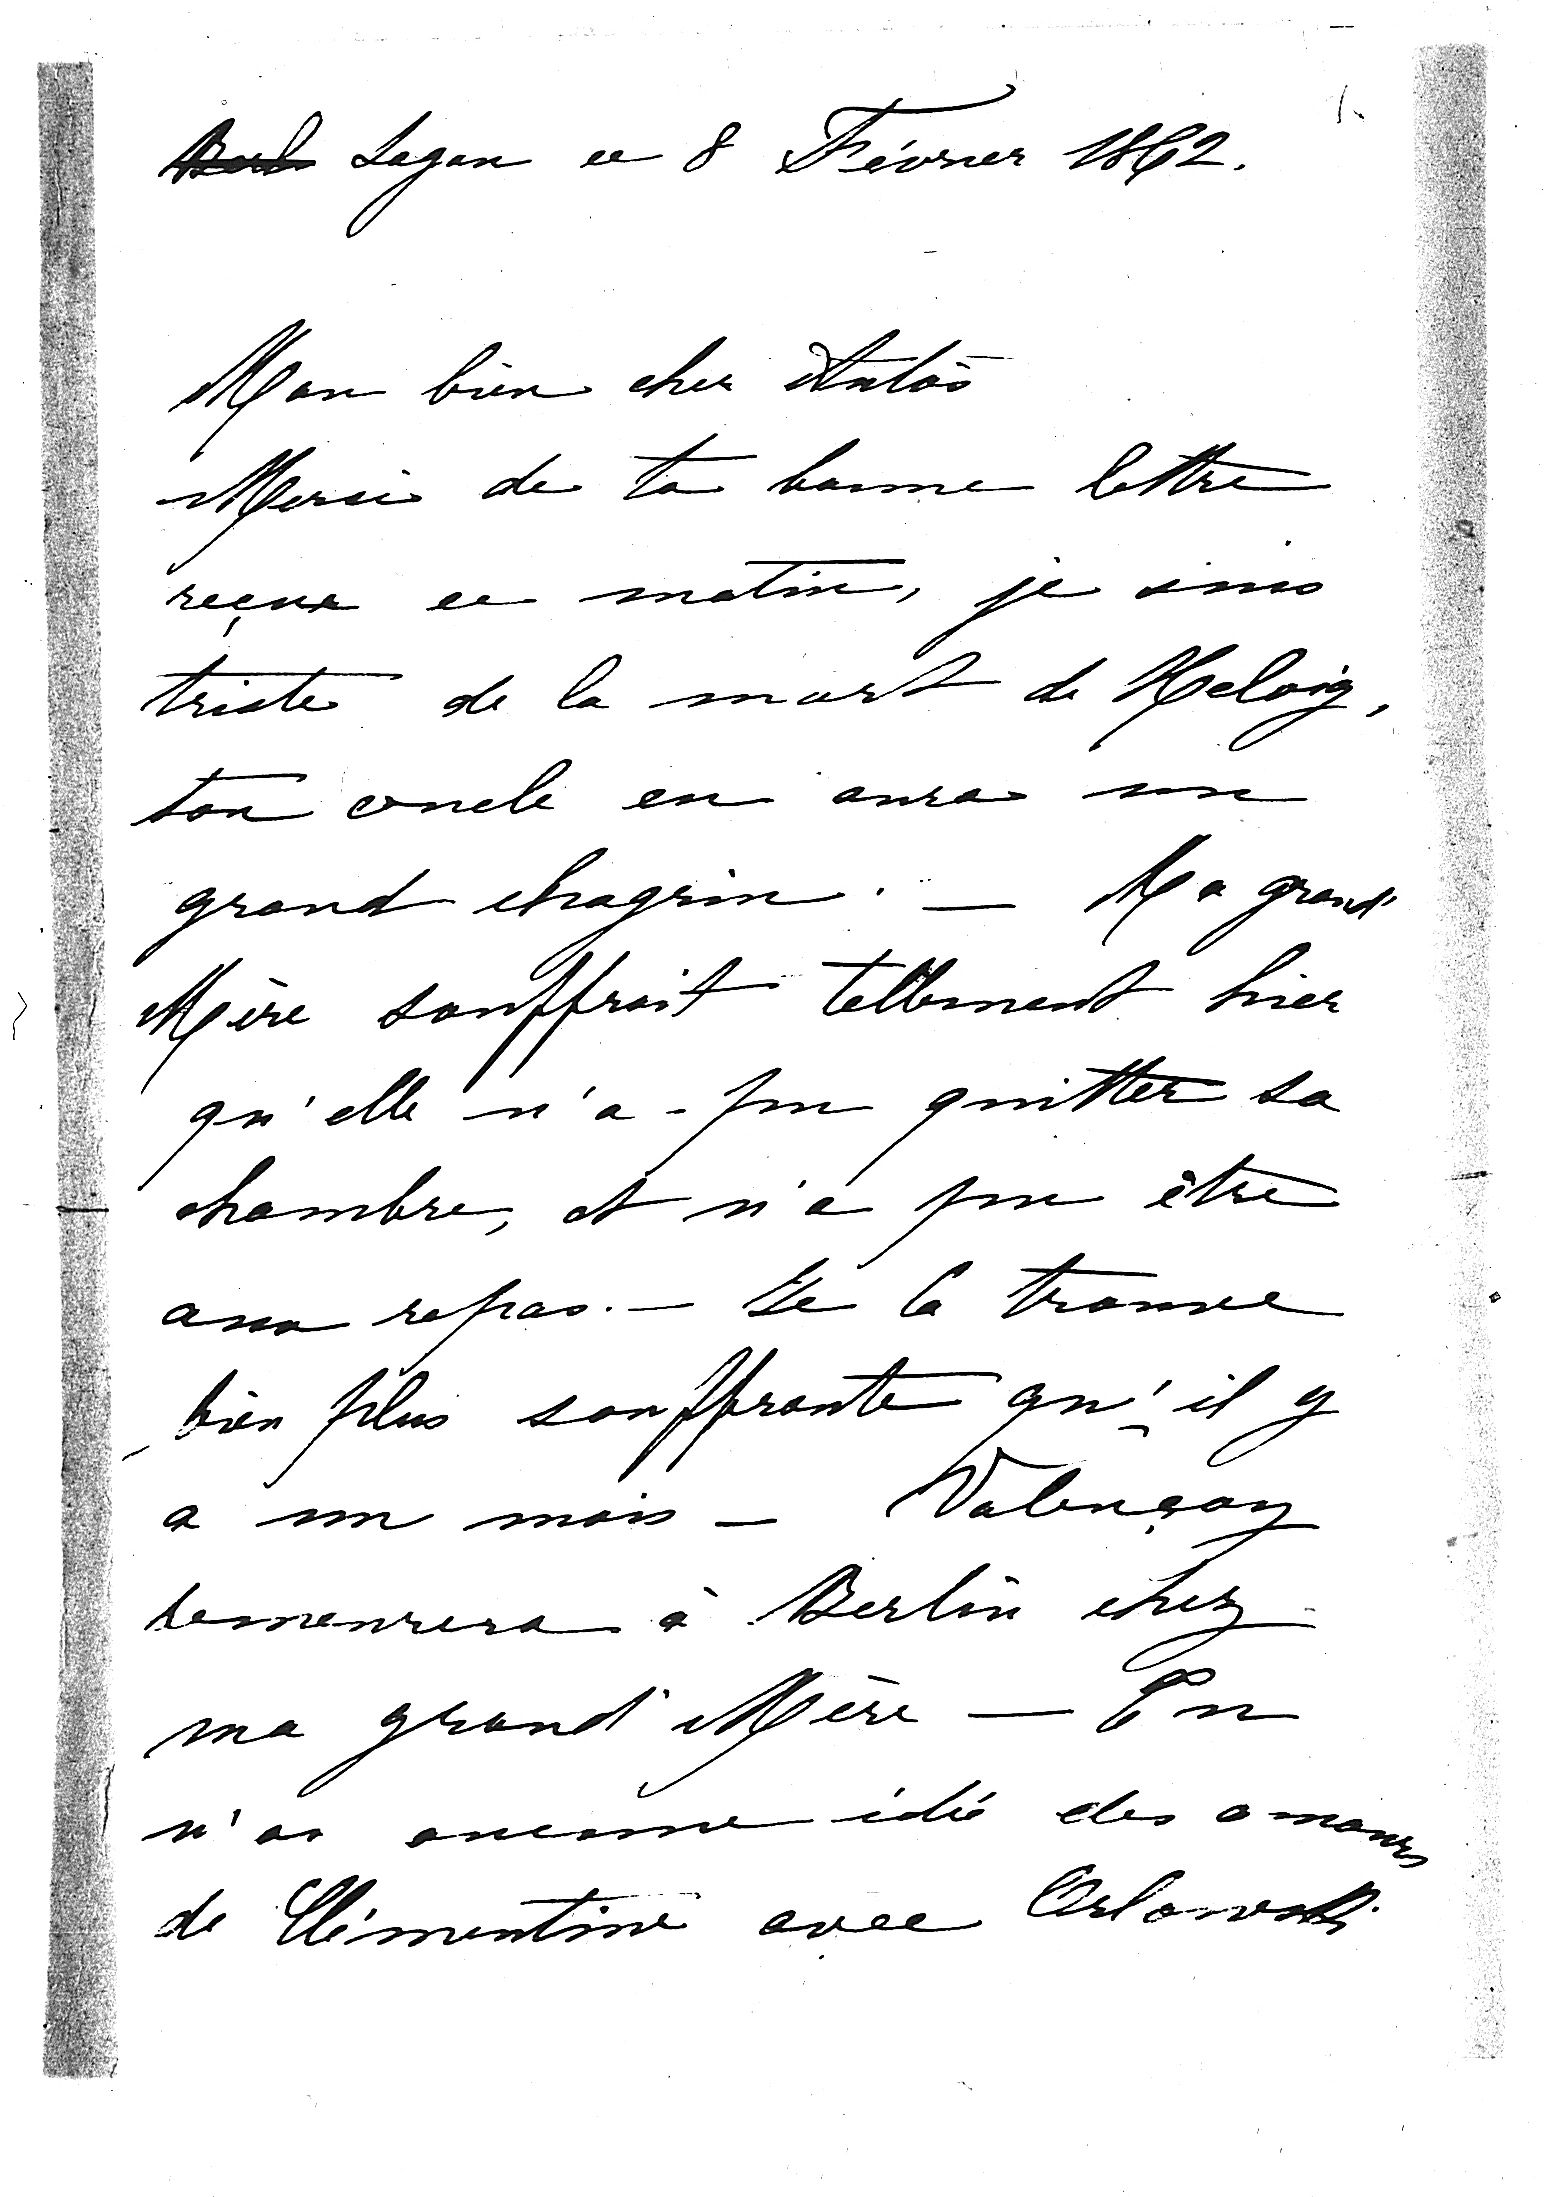 Sagan ce 8 Février 1862.
Mon bien cher Antoš
Merci de ta bonne lettre
reçue ce matin, je suis
triste de la mort de Helvig,
ton oncle en aura un
grand chagrin. — Ma grand'
Mère souffrait tellement hier
qu'elle n'a pu quitter sa
chambre, et n'a pu être
aux repas. — Je la trouve
bien plus souffrante qu'il y
a un mois — Valençay
demeurera à Berlin chez
ma grand' Mère — On
n'as aucune idée des amours
de Clémentine avec Orlowski